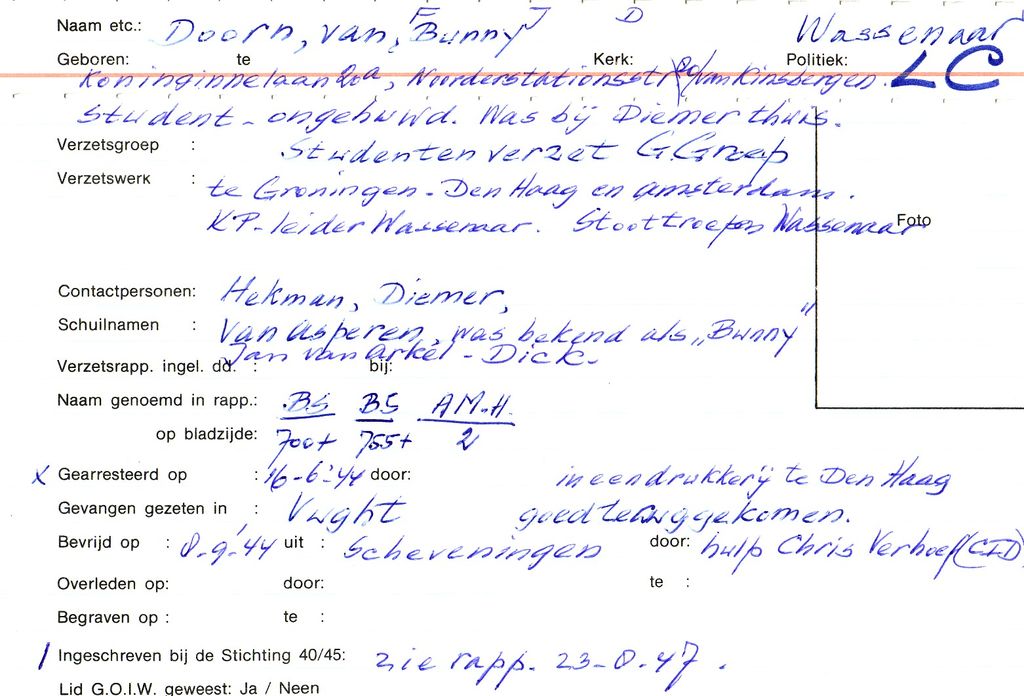 F J D
Naam etc.: Doorn, van, Bunny Wassenaar
Geboren: te Kerk: Politiek: LC
Koninginnelaan 20a, Noorderstationsstr 80/mm Kinsbergen.
Student - ongehuwd. Was bij Diemer thuis.
Verzetsgroep : Studentenverzet G.Groep
Verzetswerk : te Groningen - Den Haag en Amsterdam.
KP-leider Wassenaar. Stoottroepen Wassenaar
Foto
Contactpersonen: Hekman, Diemer,
Schuilnamen : Van Asperen, was bekend als „Bunny"
Jan van Arkel - Dick -
Verzetsrapp. ingel. dd. : bij:
Naam genoemd in rapp.: BS BS A.M.H.
op bladzijde: 700+ 755+ 2
x Gearresteerd op : 16-6-'44 door: in een drukkerij te Den Haag
Gevangen gezeten in : Vught goed teruggekomen.
Bevrijd op : 8-9-'44 uit : Scheveningen door: hulp Chris Verhoef (CID)
Overleden op: door: te :
Begraven op : te :
/ Ingeschreven bij de Stichting 40/45: zie rapp. 23-8-47.
Lid G.O.I.W. geweest: Ja / Neen